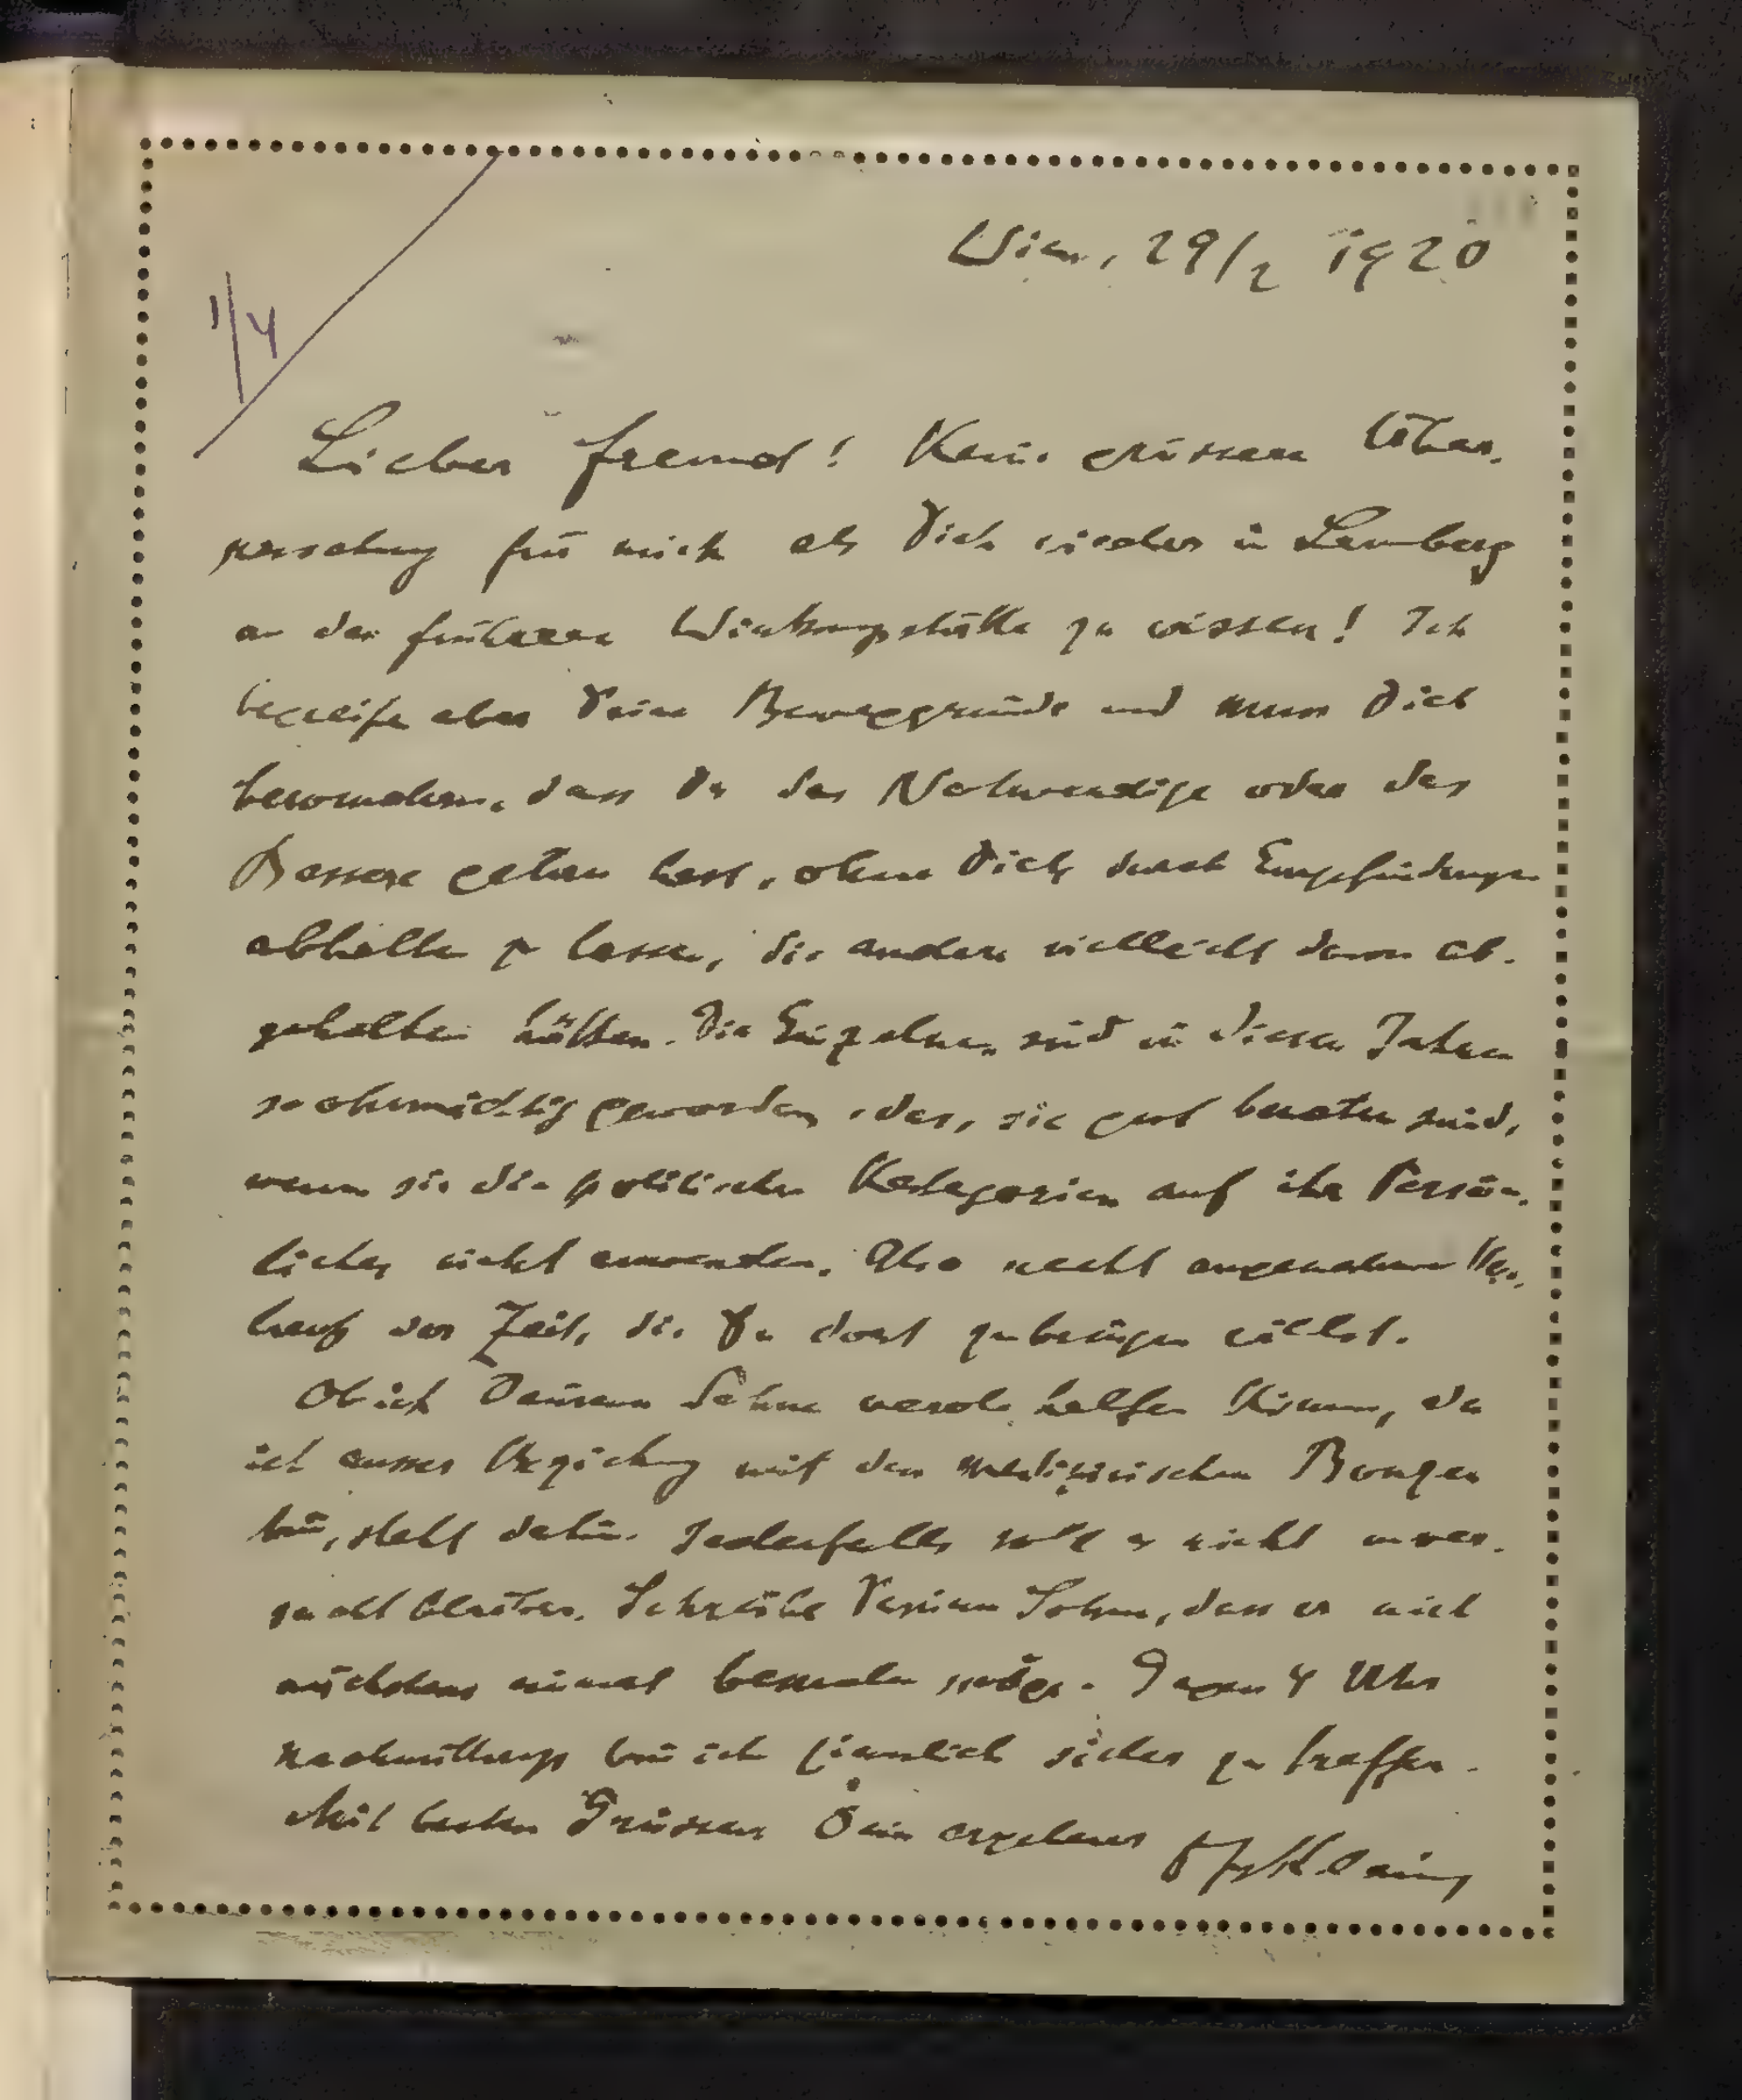 Wien, 29/2 1920
1/4
Lieber Freund! Kein grössere Über-
raschung für mich als Dich wieder in Lemberg
an der früheren Wirkungsstätte zu wissen! Ich
begreife aber Deine Beweggründe und muss Dich
bewundern, dass Du das Notwendige oder das
Bessere getan hast, ohne Dich durch Empfindungen
abhalten zu lassen, die andere vielleicht davon ab-
gehalten hätten. Die Einzelnen sind in diesen Jahren
so ohnmächtig geworden, dass sie gut beraten sind,
wenn sie die politischen Kategorien auf ihr Persön-
liches nicht anwenden. Also recht angenehmen Ver-
lauf der Zeit, die Du dort zubringen willst.
Ob ich Deinem Sohne werde helfen können, da
ich ausser Beziehung mit den medizinischen Bonzen
bin, steht dahin. Jedenfalls soll es nicht unver-
sucht bleiben. Schreibe Deinem Sohne, dass er mich
nächstens einmal besuchen möge. Gegen 4 Uhr
nachmittags bin ich ziemlich sicher zu treffen.
Mit besten Grüssen Dein ergebener